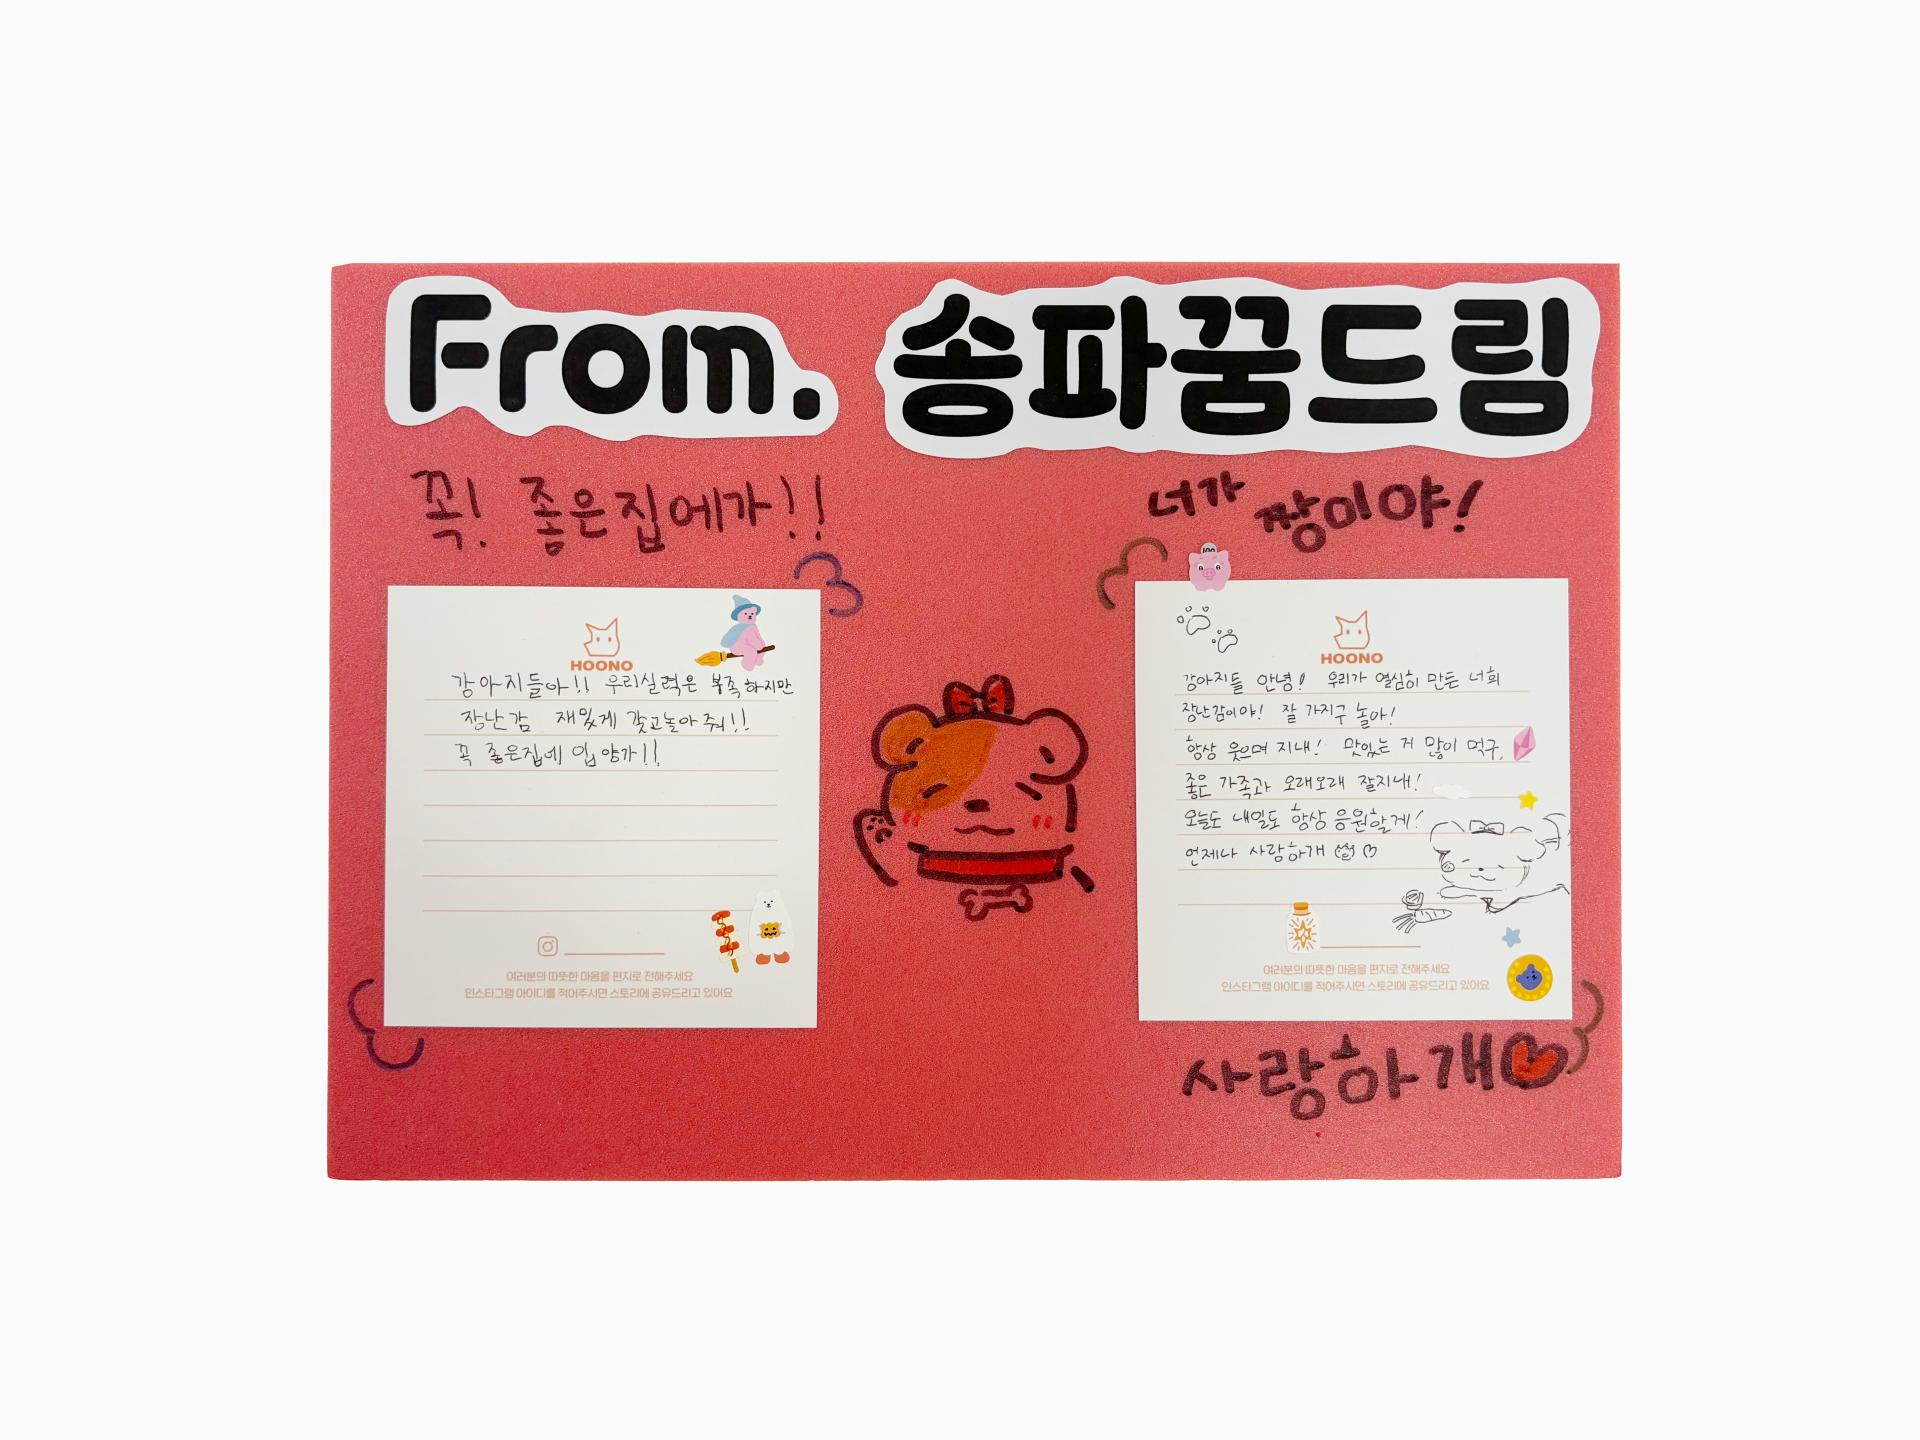 From. 송파꿈드림
꼭! 좋은집에가!!
너가 짱이야!
HOONO
강아지들아!! 우리실력은 부족하지만
장난감 재밌게 갖고놀아줘!!
꼭 좋은집에 입양가!!
여러분의 따뜻한 마음을 편지로 전해주세요
인스타그램 아이디를 적어주시면 스토리에 공유드리고 있어요
100
HOONO
강아지들 안녕! 우리가 열심히 만든 너희
장난감이야! 잘 가지구 놀아!
항상 웃으며 지내! 맛있는 거 많이 먹구,
좋은 가족과 오래오래 잘지내!
오늘도 내일도 항상 응원할게!
언제나 사랑하개
여러분의 따뜻한 마음을 편지로 전해주세요
인스타그램 아이디를 적어주시면 스토리에 공유드리고 있어요
사랑하개